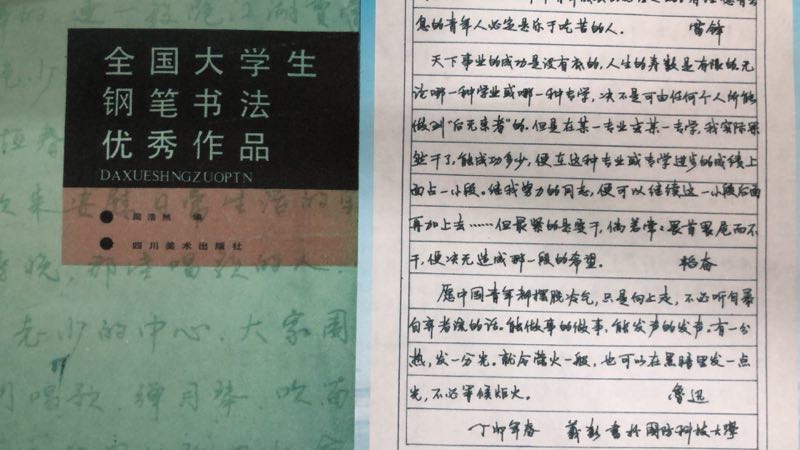 全国大学生
钢笔书法
优秀作品
DAXUESHNGZUOPTN
编
四川美术出版社
息的青年人必定是乐于吃苦的人。 雷锋
天下事业的成功是没有底的，人生的寿数是有限的，无
论哪一种学业或哪一种专学，决不是可由任何个人所能
做到“后无来者”的。但是在某一专业或某一专学，我实际果
然干了，能成功多少，便在这种专业或专学进步的成绩上
面占一小段。继我努力的同志，便可以继续这一小段后面
再加上去……但最紧的是要干，倘若常畏首畏尾而不
干，便决无造成那一段的希望。 韬奋
愿中国青年都摆脱冷气，只是向上走，不必听自暴
自弃者流的话。能做事的做事，能发声的发声。有一分
热，发一分光。就令萤火一般，也可以在黑暗里发一点
光，不必等候炬火。 鲁迅
丁卯年春 戴彭书于国防科技大学